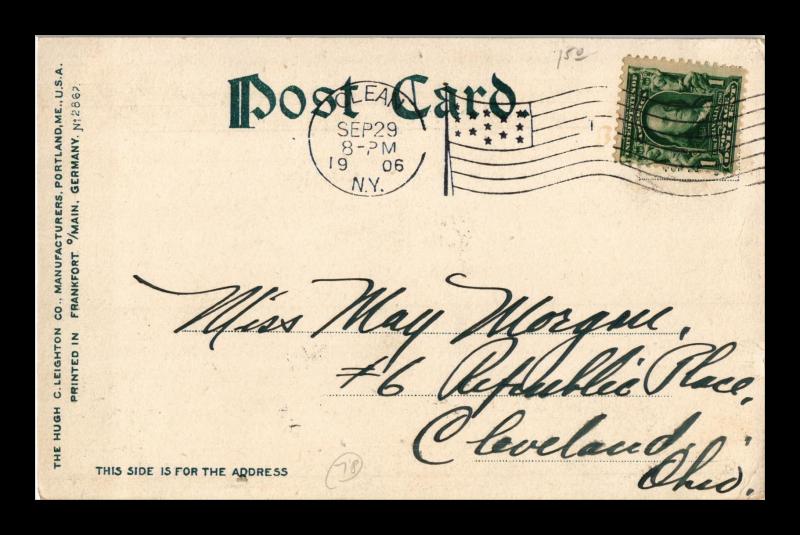 150
Post Card
OLEAN
SEP 29
8-PM
19 06
N.Y.
1 1
Miss May Morgan,
#6 Republic Place,
Cleveland,
Ohio.
THIS SIDE IS FOR THE ADDRESS
78
THE HUGH C. LEIGHTON CO., MANUFACTURERS, PORTLAND, ME., U.S.A.
PRINTED IN FRANKFORT º/MAIN, GERMANY. Nº 2862.